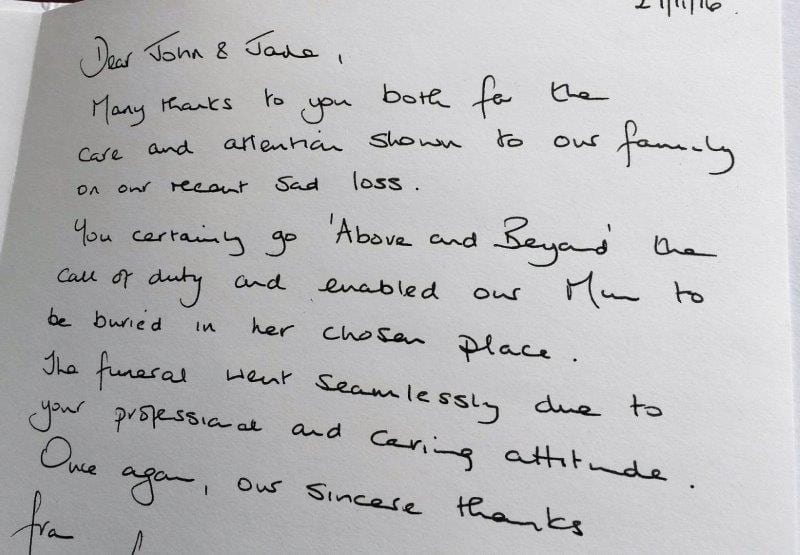 21/11/16.
Dear John & Jade,
Many thanks to you both for the
care and attention shown to our family
on our recent sad loss.
You certainly go 'Above and Beyond' the
call of duty and enabled our Mum to
be buried in her chosen place.
The funeral went seamlessly due to
your professional and caring attitude.
Once again, our sincere thanks
from